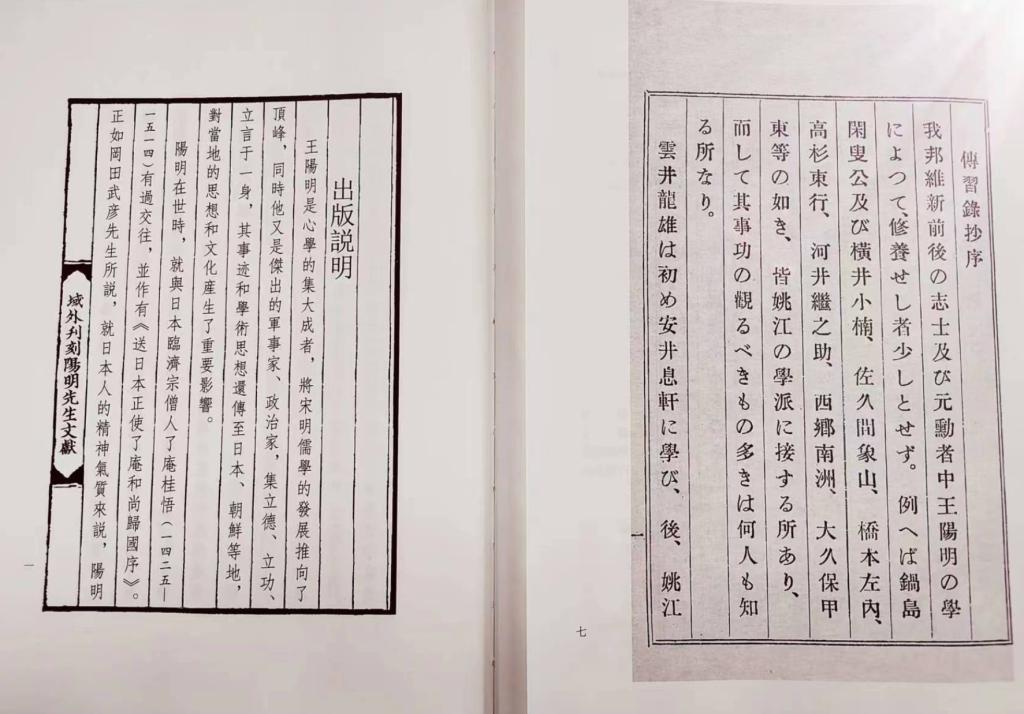 出版説明
王陽明是心學的集大成者，將宋明儒學的發展推向了
頂峰，同時他又是傑出的軍事家、政治家，集立德、立功、
立言于一身，其事迹和學術思想還傳至日本、朝鮮等地，
對當地的思想和文化産生了重要影響。
陽明在世時，就與日本臨濟宗僧人了庵桂悟（一四二五—
一五一四）有過交往，並作有《送日本正使了庵和尚歸國序》。
正如岡田武彦先生所説，就日本人的精神氣質來説，陽明
域外刊刻陽明先生文獻
一
傳習錄抄序
我邦維新前後の志士及び元勳者中王陽明の學
によつて、修養せし者少しとせず。例へば鍋島
閑叟公及び横井小楠、佐久間象山、橋本左內、
高杉東行、河井繼之助、西郷南洲、大久保甲
東等の如き、皆姚江の學派に接する所あり、
而して其事功の觀るべきもの多きは何人も知
る所なり。
雲井龍雄は初め安井息軒に學び、後、姚江
一
七